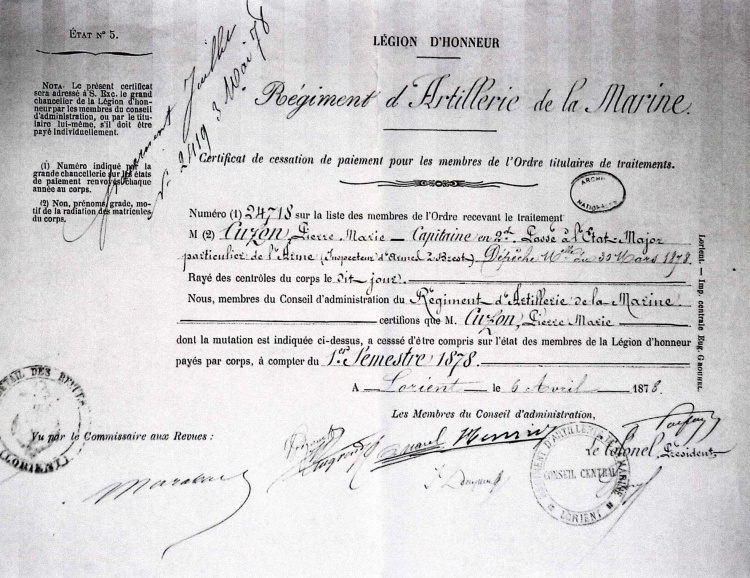 ÉTAT N° 5.
NOTA. Le présent certificat
sera adressé à S. Exc. le grand
chancelier de la Légion d'hon-
neur par les membres du conseil
d'administration, ou par le titu-
laire lui-même, s'il doit être
payé individuellement.
(1) Numéro indiqué par la
grande chancellerie sur les états
de paiement renvoyés chaque
année au corps.
(2) Non, prénoms, grade, mo-
tif de la radiation des matricules
du corps.
N° 2419 3 Mai 78
LÉGION D'HONNEUR
Régiment d'Artillerie de la Marine.
Certificat de cessation de paiement pour les membres de l'Ordre titulaires de traitements.
ARCHIVES
NATIONALES
Numéro (1) 24718 sur la liste des membres de l'Ordre recevant le traitement
M (2) Cuzon, Pierre Marie — Capitaine en 2d. Passé à l'Etat-Major
particulier de l'Arme (Inspecteur d'Armes à Brest). Dépêche Mlle du 30 Mars 1878.
Rayé des contrôles du corps le dit jour.
Nous, membres du Conseil d'administration du Régiment d'Artillerie de la Marine
certifions que M. Cuzon, Pierre Marie
dont la mutation est indiquée ci-dessus, a cesssé d'être compris sur l'état des membres de la Légion d'honneur
payés par corps, à compter du 1er Semestre 1878.
A Lorient le 6 Avril 1878.
Les Membres du Conseil d'administration,
Vu par le Commissaire aux Revues :
Le Colonel, Président
DÉTAIL DES REVUES
(LORIENT)
RÉGIMENT D'ARTILLERIE DE LA MARINE
CONSEIL CENTRAL
LORIENT
Lorient. — Imp. centrale Eug. GROUHEL.